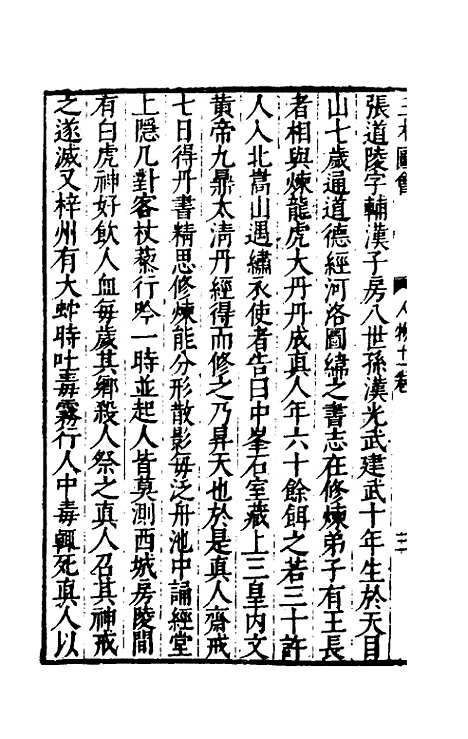 三才圖會 人物十卷 三
張道陵字輔漢子房八世孫漢光武建武十年生於天目
山七歲通道德經河洛圖緯之書志在修煉弟子有王長
者相與煉龍虎大丹丹成真人年六十餘餌之若三十許
人入北嵩山遇繡衣使者告曰中峯石室藏上三皇內文
黃帝九鼎太清丹經得而修之乃昇天也於是真人齋戒
七日得丹書精思修煉能分形散影每泛舟池中誦經堂
上隱几對客杖藜行吟一時並起人皆莫測西城房陵間
有白虎神好飲人血每歲其鄉殺人祭之真人召其神戒
之遂滅又梓州有大蛇時吐毒霧行人中毒輒死真人以